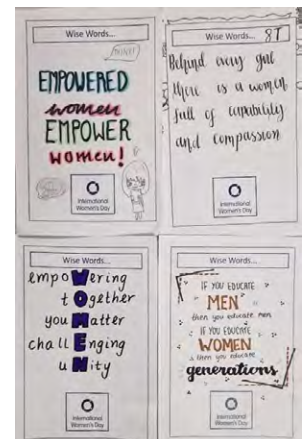 Wise Words...
EMPOWERED
women
EMPOWER
women!
International
Women's Day
Wise Words... 8T
Behind every girl
there is a women
full of capability
and compassion
International
Women's Day
Wise Words...
empoWering
tOgether
you Matter
challEnging
uNity
International
Women's Day
Wise Words...
IF YOU EDUCATE
MEN
then you educate men
IF YOU EDUCATE
WOMEN
then you educate
generations
International
Women's Day